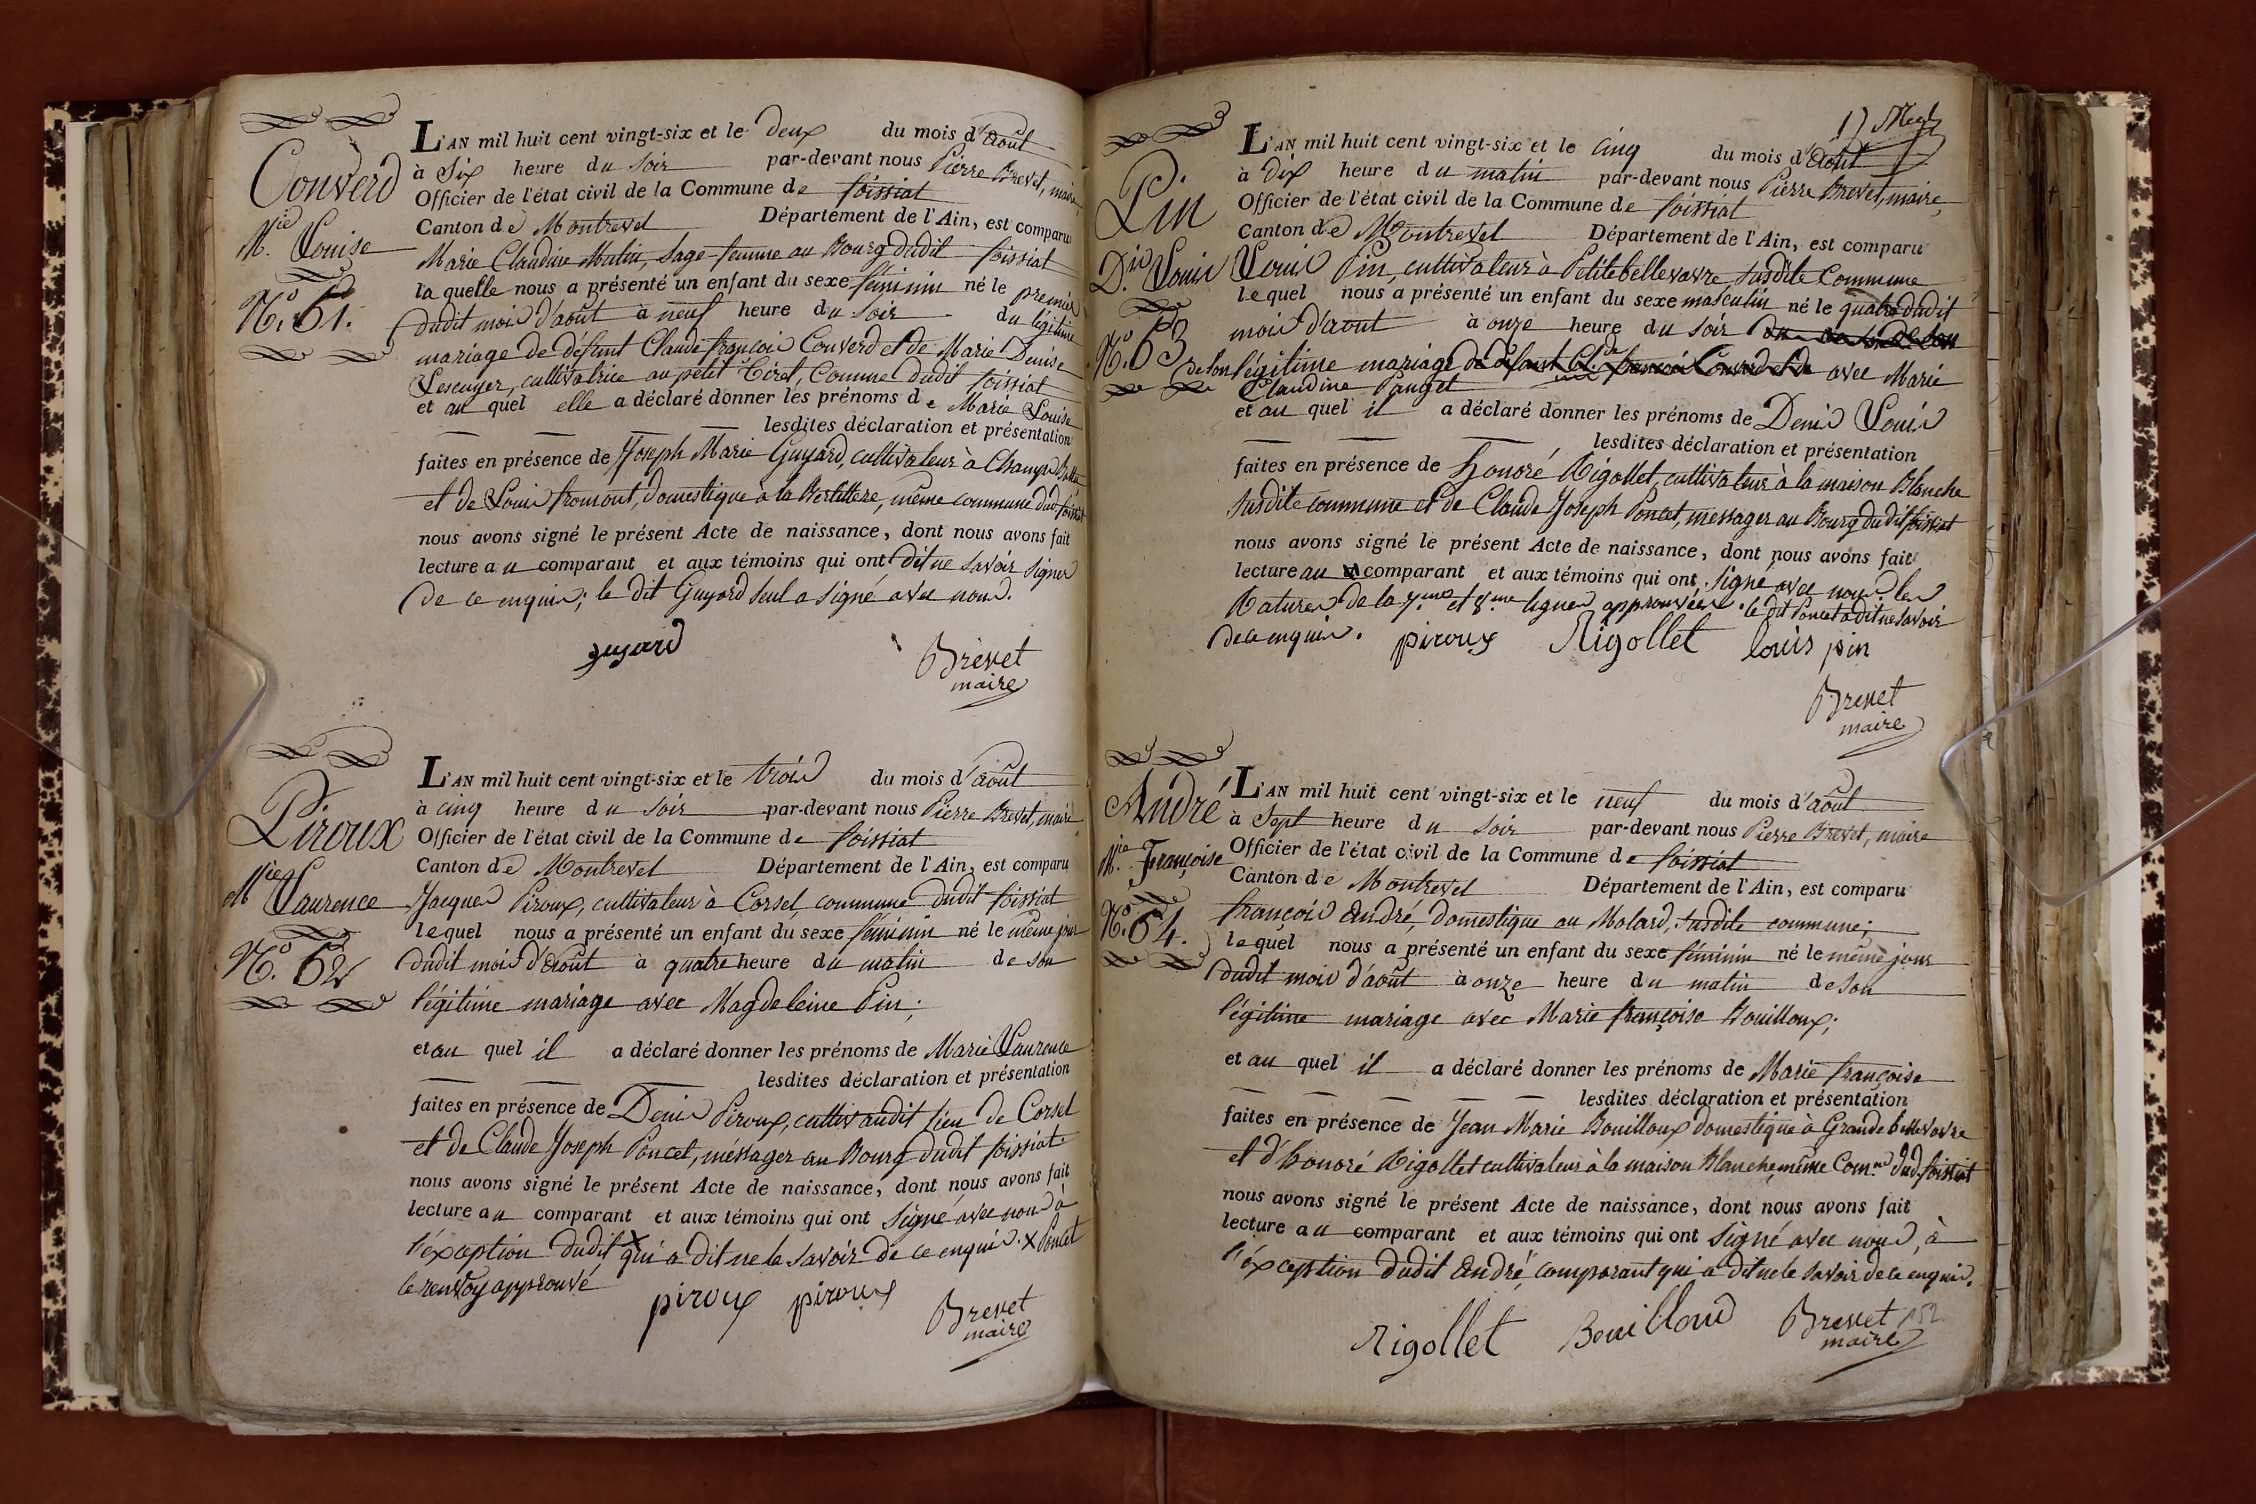 Converd
Mie Louise
No. 61.
L'AN mil huit cent vingt-six et le deux du mois d'août
à Six heure du soir par-devant nous Pierre Brevet, maire,
Officier de l'état civil de la Commune de foissiat
Canton de Montrevel Département de l'Ain, est comparu
Marie Claudine Mulin, Sage-femme au Bourg dudit foissiat
la quelle nous a présenté un enfant du sexe féminin né le premier
dudit mois d'août à neuf heure du soir du légitime
mariage de défunt Claude françois Converd et de Marie Denise
Lescuyer, cultivatrice au petit Tiret, Commune dudit foissiat
et au quel elle a déclaré donner les prénoms de Marie Louise
lesdites déclaration et présentation
faites en présence de Joseph Marie Guyard, cultivateur à
et de Louis fromont, domestique à la même commune dud. foissiat
nous avons signé le présent Acte de naissance, dont nous avons fait
lecture au comparant et aux témoins qui ont dit ne savoir signer
de ce enquis; le dit Guyard seul a signé avec nous.
guyard Brevet
maire
Piroux
Mie Laurence
No. 62
L'AN mil huit cent vingt-six et le trois du mois d'août
à cinq heure du soir par-devant nous Pierre Brevet, maire
Officier de l'état civil de la Commune de foissiat
Canton de Montrevel Département de l'Ain, est comparu
Jacques Piroux, cultivateur à Corsel, commune dudit foissiat
lequel nous a présenté un enfant du sexe féminin né le même jour
dudit mois d'août à quatre heure du matin de son
légitime mariage avec Magdeleine Pin;
et au quel il a déclaré donner les prénoms de Marie Laurence
lesdites déclaration et présentation
faites en présence de Denis Piroux, cultiv. audit lieu de Corsel
et de Claude Joseph Poncet, méssager au Bourg dudit foissiat
nous avons signé le présent Acte de naissance, dont nous avons fait
lecture au comparant et aux témoins qui ont signé avec nous à
l'éxception dudit x qui a dit ne le savoir de ce enquis. x Poncet
le renvoy approuvé
piroux piroux Brevet
maire
Pin
Dis Louis
No. 63
L'AN mil huit cent vingt-six et le cinq du mois d'août
à dix heure du matin par-devant nous Pierre Brevet, maire,
Officier de l'état civil de la Commune de foissiat
Canton de Montrevel Département de l'Ain, est comparu
Louis Pin, cultivateur à Petitebellevavre susdite Commune
lequel nous a présenté un enfant du sexe masculin né le quatre dudit
mois d'août à onze heure du soir
de son légitime mariage de défunt Cl.de françois Converd et de avec Marie
Claudine Pauget
et au quel il a déclaré donner les prénoms de Denis Louis
lesdites déclaration et présentation
faites en présence de honoré Rigollet, cultivateur à la maison Blanche
susdite commune et de Claude Joseph Poncet, messager au Bourg dudit foissiat
nous avons signé le présent Acte de naissance, dont nous avons fait
lecture au comparant et aux témoins qui ont signé avec nous. les
Ratures de la 7.me et 8.me lignes approuvées. le dit Poncet a dit ne savoir
de ce enquis. piroux Rigollet louis pin
Brevet
maire
André
Mie Françoise
No. 64.
L'AN mil huit cent vingt-six et le neuf du mois d'août
à Sept heure du soir par-devant nous Pierre Brevet, maire
Officier de l'état civil de la Commune de foissiat
Canton de Montrevel Département de l'Ain, est comparu
françois André, domestique au Molard, susdite commune;
lequel nous a présenté un enfant du sexe féminin né le même jour
dudit mois d'août à onze heure du matin de son
légitime mariage avec Marie françoise Bouilloux;
et au quel il a déclaré donner les prénoms de Marie françoise
lesdites déclaration et présentation
faites en présence de Jean Marie Bouilloux domestique à Grande bellevavre
et d'honoré Rigollet cultivateur à la maison Blanche, même Com.ne dud. foissiat
nous avons signé le présent Acte de naissance, dont nous avons fait
lecture au comparant et aux témoins qui ont signé avec nous, à
l'éxception dudit André, comparant qui a dit ne le savoir de ce enquis.
Rigollet Bouilloud Brevet 152
maire